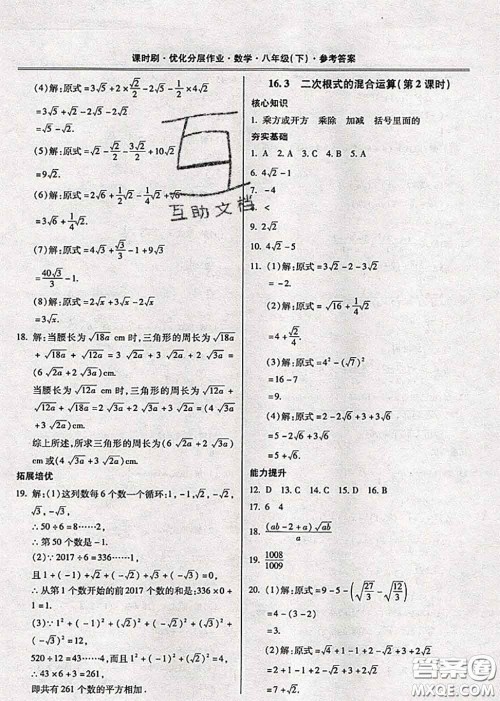 课时刷·优化分层作业·数学·八年级(下)·参考答案
(4)解:原式=3√5+2×√2/2-√5-√2
=3√5+√2-√5-√2
=2√5.
(5)解:原式=2√2-√2-2√2+10√2
=9√2.
(6)解:原式=2√6+1/2√2-1/4√2+√6
=3√6+1/4√2.
(7)解:原式=4√3+√3/3-1+9√3
=40√3/3-1.
(8)解:原式=2√x+3√x-2√x
=3√x.
18. 解:当腰长为√18a cm时,三角形的周长为√18a
+√18a+√12a=3√2a+3√2a+2√3a=
(6√2a+2√3a)cm.
当腰长为√12a cm时,三角形的周长为√12a+
√12a+√18a=2√3a+2√3a+3√2a=(4√3a
+3√2a)cm.
综上所述,所求三角形的周长为(6√2a+2√3a)
cm或(4√3a+3√2a)cm.
拓展培优
19. 解:(1)这列数每6个数一个循环:1,-1,√2,
-√2,√3,-√3.
∴50÷6=8……2,
∴第50个数是-1.
(2)∵2017÷6=336……1,
且1+(-1)+√2+(-√2)+√3+(-√3)=0,
∴从第1个数开始的前2017个数的和是:
336×0+1=1.
(3)∵1²+(-1)²+(√2)²+(-√2)²+(√3)²+
(-√3)²=12,
520÷12=43……4,而且1²+(-1)²+(√2)²=
4,∴43×6+3=261,
即共有261个数的平方相加.
16.3 二次根式的混合运算(第2课时)
核心知识
1. 乘方或开方 乘除 加减 括号里面的
夯实基础
1. A 2. A 3. C 4. B 5. A
6. 4√2-1
7. -4
8. <
9. 2√2
10. 4√2-5
11. (1)解:原式=3√2-2-3√2
=-2.
(2)解:原式=√16+1/4√2
=4+√2/4.
(3)解:原式=4²-(√7)²
=16-7
=9.
(4)解:原式=2-2√6+3+3√6
=5-2√6+3√6
=5+√6.
能力提升
12. D 13. C 14. D 15. B 16. C
17. 6 4
18. (ab-2+a)√ab/a
19. 1008/1009
20. (1)解:原式=9-5-(√27/3-√12/3)
=4-3+2
=3.
(2)解:原式=√4+1-1-2+√2+1
=2+1-1-2+√2+1
=√2+1.
互助文档
答案圈
MXQE.COM